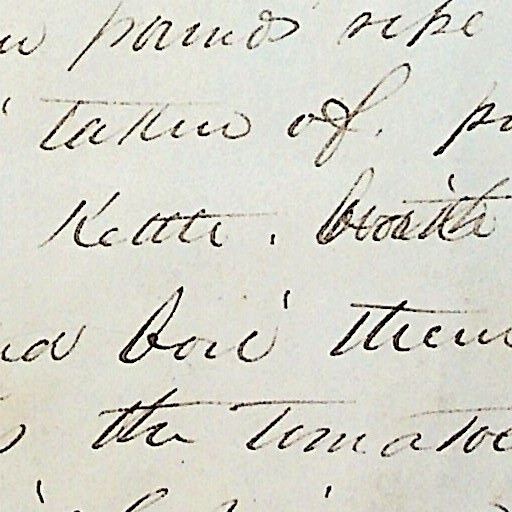 pounds ripe
taken off. pu
Kettle. 
and boil them
the Tomatoe